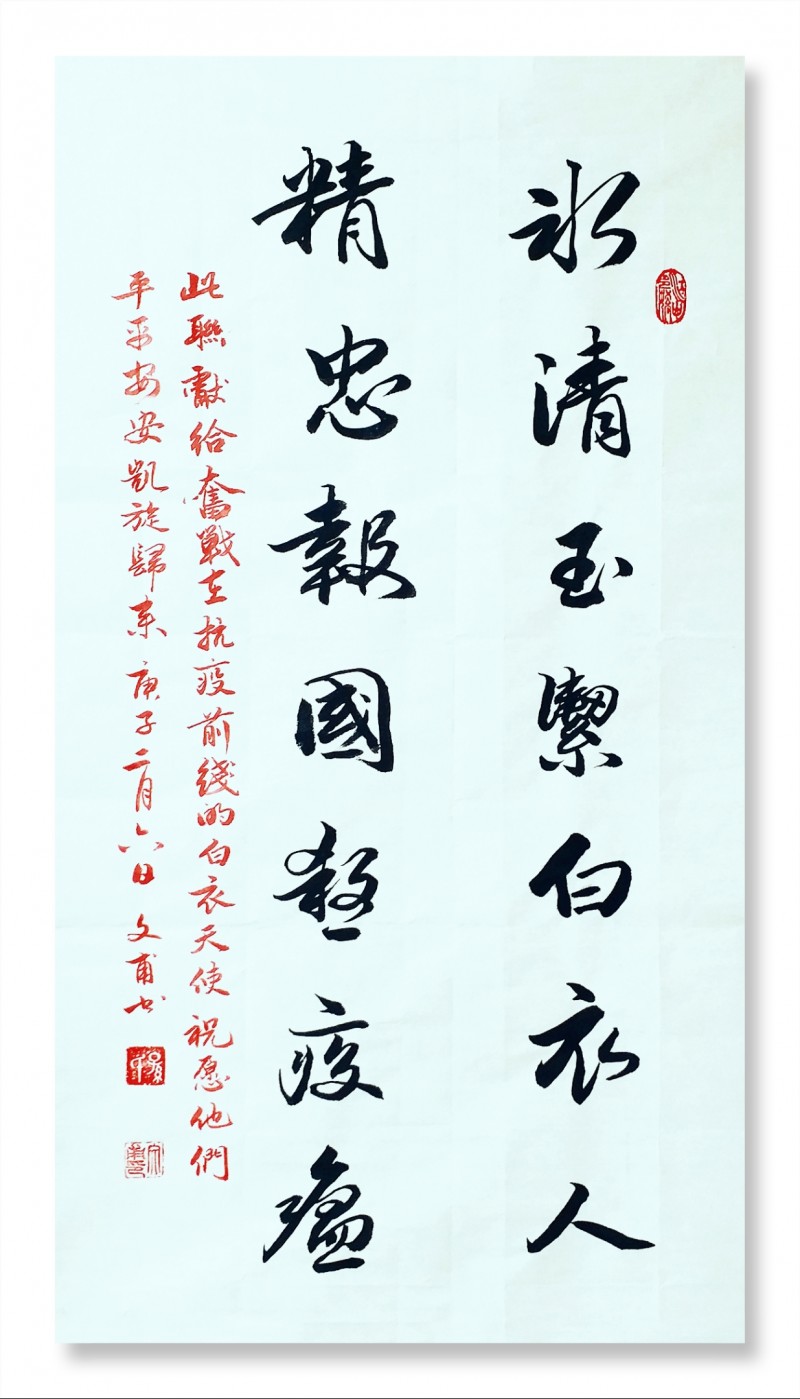 冰清玉潔白衣人
精忠報國煞疫瘟
此聯獻給奮戰在抗疫前綫的白衣天使祝愿他們
平平安安凱旋歸来 庚子二月六日 文甫书